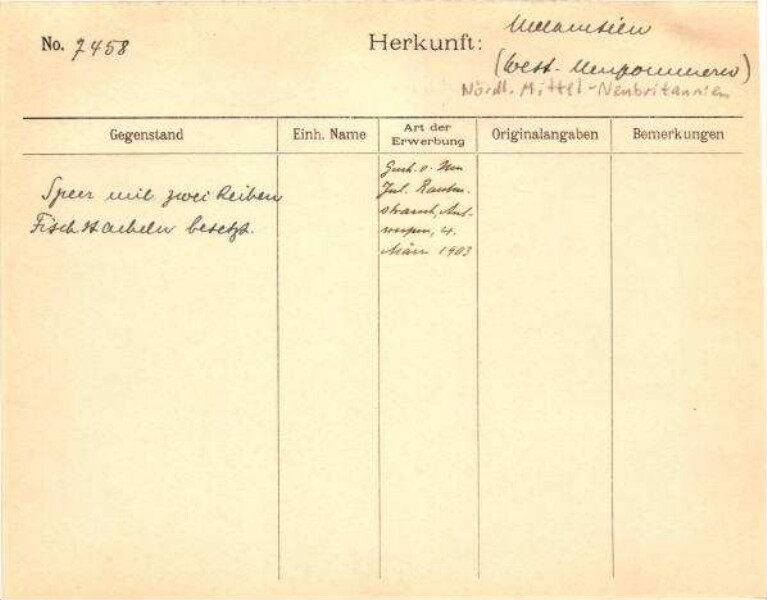 No. 7458
Herkunft: Melanesien
(West-Neupommern)
Nördl. Mittel-Neubritannien
Gegenstand
Einh. Name
Art der Erwerbung
Originalangaben
Bemerkungen
Speer mit zwei Reihen
Fischstacheln besetzt.
Gesch. v. Hrn
Jul. Rauten-
strauch, Ant-
werpen, 4.
März 1903